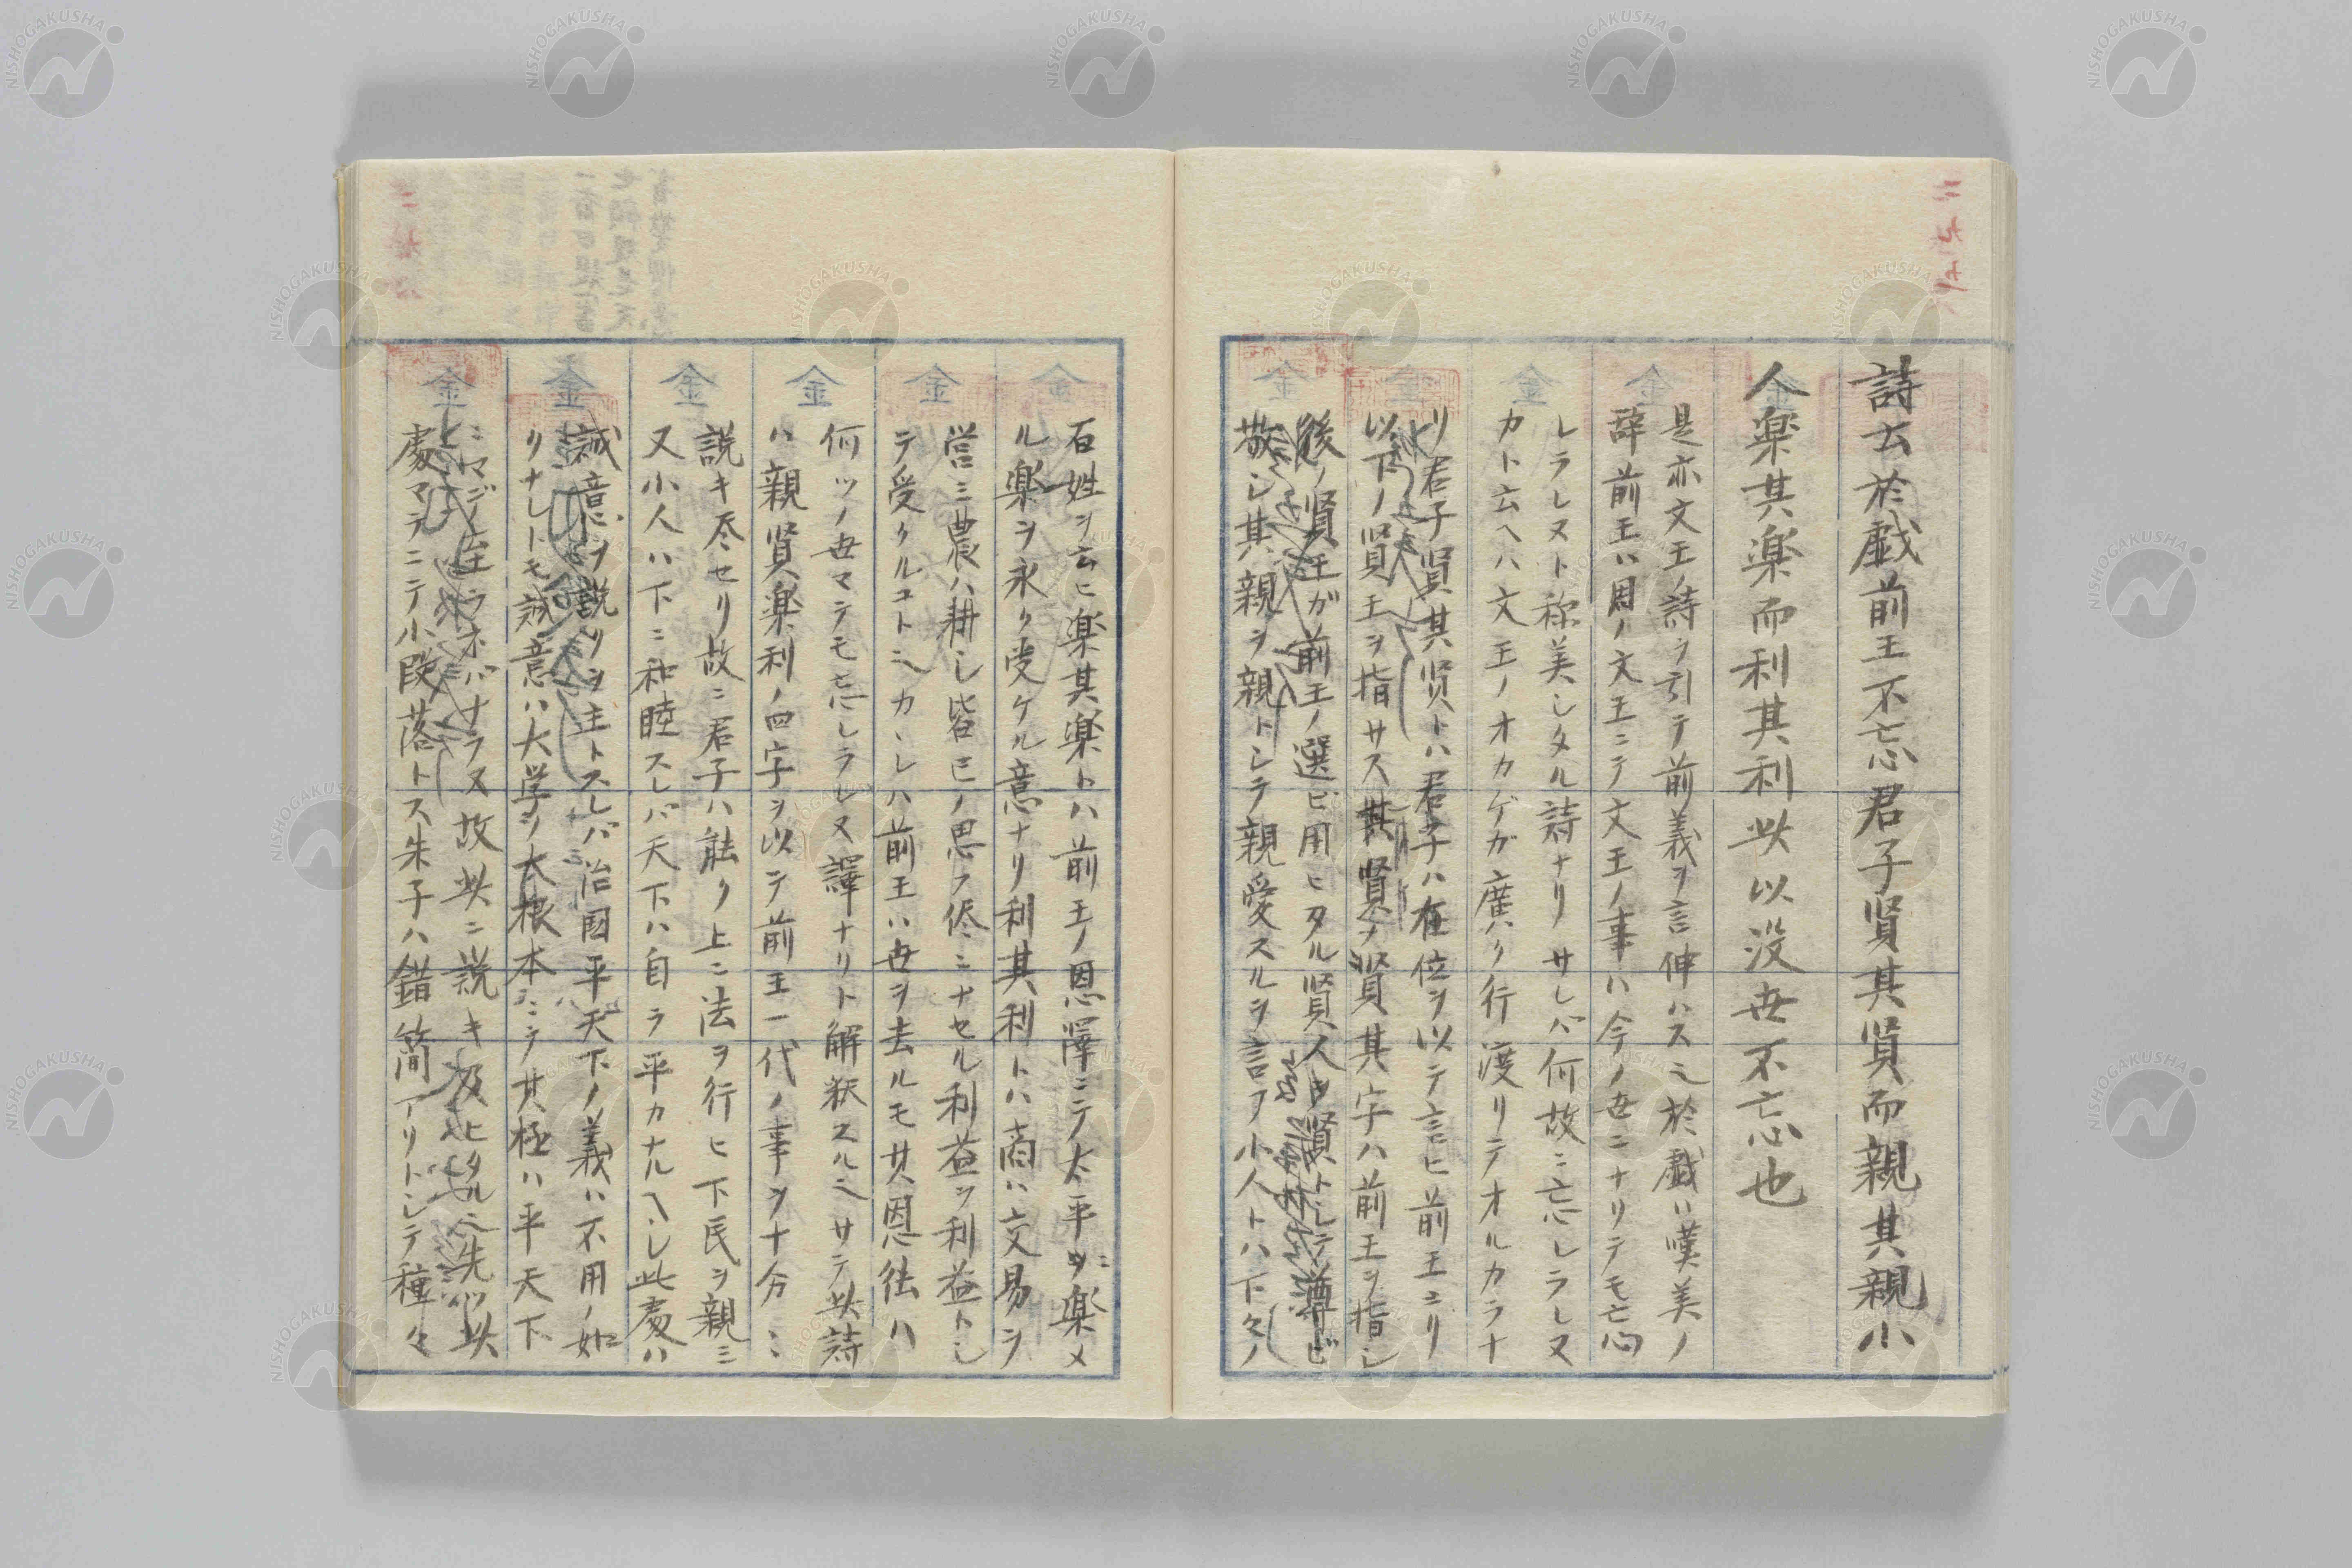 詩云於戯前王不忘君子賢其賢而親其親小
人楽其楽而利其利此以没世不忘也
是亦文王ノ詩ヲ引テ前義ヲ言伸ハス也於戯ハ嘆美ノ
辞前王ハ周ノ文王ニテ文王ノ事ハ今ノ世ニナリテモ忘
レラレヌト称美シタル詩ナリサレバ何故ニ忘レラレヌ
カト云ヘハ文王ノオカゲガ廣ク行渡リテオルカラナ
リ君子賢其賢トハ君子ハ在位ヲ以テ言ヒ前王ヨリ
以下ノ賢王ヲ指サス其賢ノ賢其字ハ前王ヲ指シ
後ノ賢王ガ前王ノ選ビ用ヒタル賢人ヲ賢トシテ尊ビ
敬シ其親ヲ親トシテ親愛スルヲ言フ小人トハ下々ノ
石姓ヲ云ヒ楽其楽トハ前王ノ恩澤ニテ太平ニ楽メ
ル楽ヲ永ク受ケル意ナリ利其利トハ商ハ交易ヲ
営ミ農ハ耕シ皆己ノ思フ侭ニナセル利益ヲ利益トシ
テ受クルコト也カヽレハ前王ハ世ヲ去ルモ其恩徳ハ
何ツノ世マテモ忘レラレヌ譯ナリト解釈スル也サテ此詩
ハ親賢楽利ノ四字ヲ以テ前王一代ノ事ヲ十分ニ
説キ尽セリ故ニ君子ハ能ク上ニ法ヲ行ヒ下民ヲ親ミ
又小人ハ下ニ和睦スレバ天下ハ自ラ平カナルヘシ此處ハ
誠意ヲ説クヲ主トスレバ治國平天下ノ義ハ不用ノ如
クナレトモ誠意ハ大学ノ大根本ニシテ其極ハ平天下
ニマジ至ラネバナラヌ故此ニ説キ及ヒタル也先以此
處マテニテ小段落トス朱子ハ錯簡アリトシテ種々
金
NISHOGAKUSHA